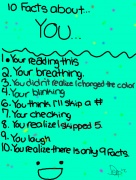 10 Facts about...
YOU...
1. Your reading this
2. Your breathing.
3. You didn't realize I changed the color
4. Your blinking
6. You think I'll skip a #
7. Your checking
8. You realize I skipped 5.
9. You laugh
10. You realize there is only 9 facts.